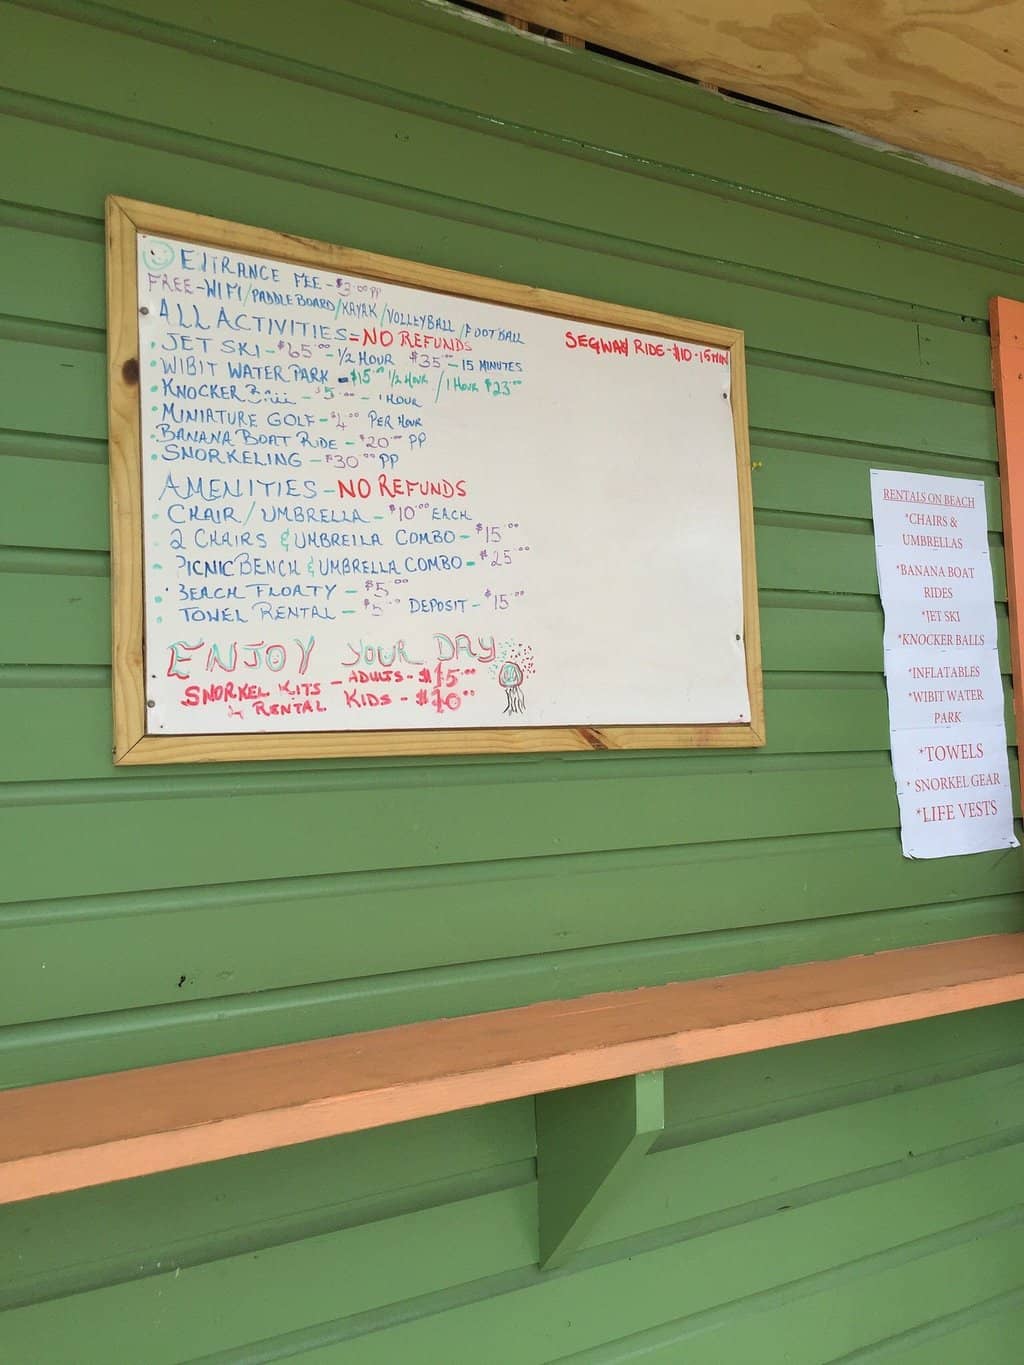 ENTRANCE FEE - $3.00 PP
FREE - WIFI / PADDLE BOARD / KAYAK / VOLLEYBALL / FOOTBALL
ALL ACTIVITIES = NO REFUNDS
• JET SKI - $65.00 - 1/2 HOUR $35.00 - 15 MINUTES
• WIBIT WATER PARK - $15.00 1/2 HOUR / 1 HOUR $23.00
• KNOCKER - $5.00 - 1 HOUR
• MINIATURE GOLF - $4.00 PER HOUR
• BANANA BOAT RIDE - $20.00 PP
• SNORKELING - $30.00 PP
AMENITIES - NO REFUNDS
• CHAIR / UMBRELLA - $10.00 EACH
• 2 CHAIRS & UMBRELLA COMBO - $15.00
• PICNIC BENCH & UMBRELLA COMBO - $25.00
• BEACH FLOATY - $5.00
• TOWEL RENTAL - $5.00 DEPOSIT - $15.00
ENJOY YOUR DAY
SNORKEL KITS - ADULTS - $15.00
RENTAL KIDS - $10.00
SEGWAY RIDE - $10 - 15 MIN
RENTALS ON BEACH
*CHAIRS &
UMBRELLAS
*BANANA BOAT
RIDES
*JET SKI
*KNOCKER BALLS
*INFLATABLES
*WIBIT WATER
PARK
*TOWELS
* SNORKEL GEAR
*LIFE VESTS